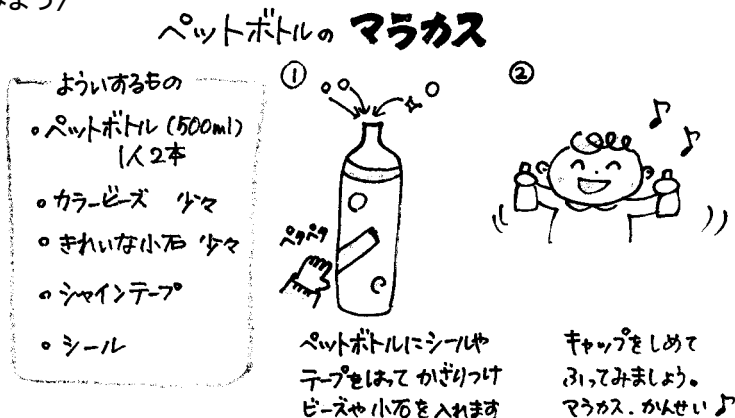 みよう/
ペットボトルの マラカス
よういするもの
・ペットボトル (500ml)
1人2本
・カラービーズ 少々
・きれいな小石 少々
・シャインテープ
・シール
①
ペタペタ
ペットボトルにシールや
テープをはって かざりつけ
ビーズや小石を入れます
②
キャップをしめて
ふってみましょう。
マラカス、かんせい♪